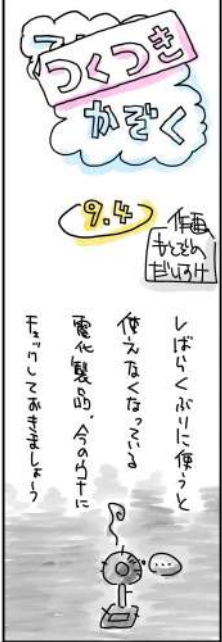 つくつき
かぞく
9.4
作画
もとぞの
だいすけ
しばらくぶりに使うと
使えなくなっている
電化製品、今のウチに
チェックしておきましょう
…